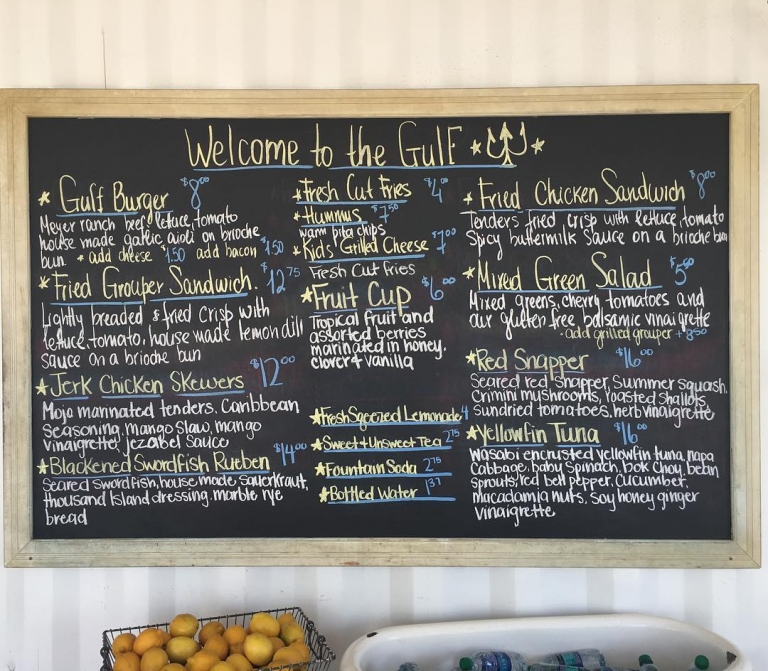 Welcome to the Gulf
Gulf Burger $8.00
Meyer ranch beef, lettuce, tomato
house made garlic aioli on brioche
bun. * add cheese $1.50 add bacon $1.50
Fried Grouper Sandwich. $12.75
Lightly breaded & fried crisp with
lettuce, tomato, house made lemon dill
sauce on a brioche bun
Jerk Chicken Skewers $12.00
Mojo marinated tenders, Caribbean
Seasoning, mango slaw, mango
vinaigrette, jezabel sauce
Blackened Swordfish Rueben $14.00
Seared swordfish, house made sauerkraut,
thousand island dressing, marble rye
bread
Fresh Cut Fries $4.00
Hummus $7.50
warm pita chips
Kids' Grilled Cheese $7.00
Fresh Cut Fries
Fruit Cup $6.00
Tropical fruit and
assorted berries
marinated in honey,
clover & vanilla
Fresh Sqeezed Lemonade 4
Sweet & Unsweet Tea 2.75
Fountain Soda 2.75
Bottled Water 1.37
Fried Chicken Sandwich $8.00
Tenders fried crisp with lettuce, tomato
Spicy buttermilk sauce on a brioche bun
Mixed Green Salad $5.00
Mixed greens, cherry tomatoes and
our gluten free balsamic vinaigrette
- add grilled grouper + 8.50
Red Snapper $16.00
Seared red snapper, Summer squash,
Crimini mushrooms, roasted shallots,
sundried tomatoes, herb vinaigrette
Yellowfin Tuna $16.00
Wasabi encrusted yellowfin tuna, napa
Cabbage, baby Spinach, bok choy, bean
sprouts, red bell pepper, Cucumber,
macadamia nuts, soy honey ginger
vinaigrette